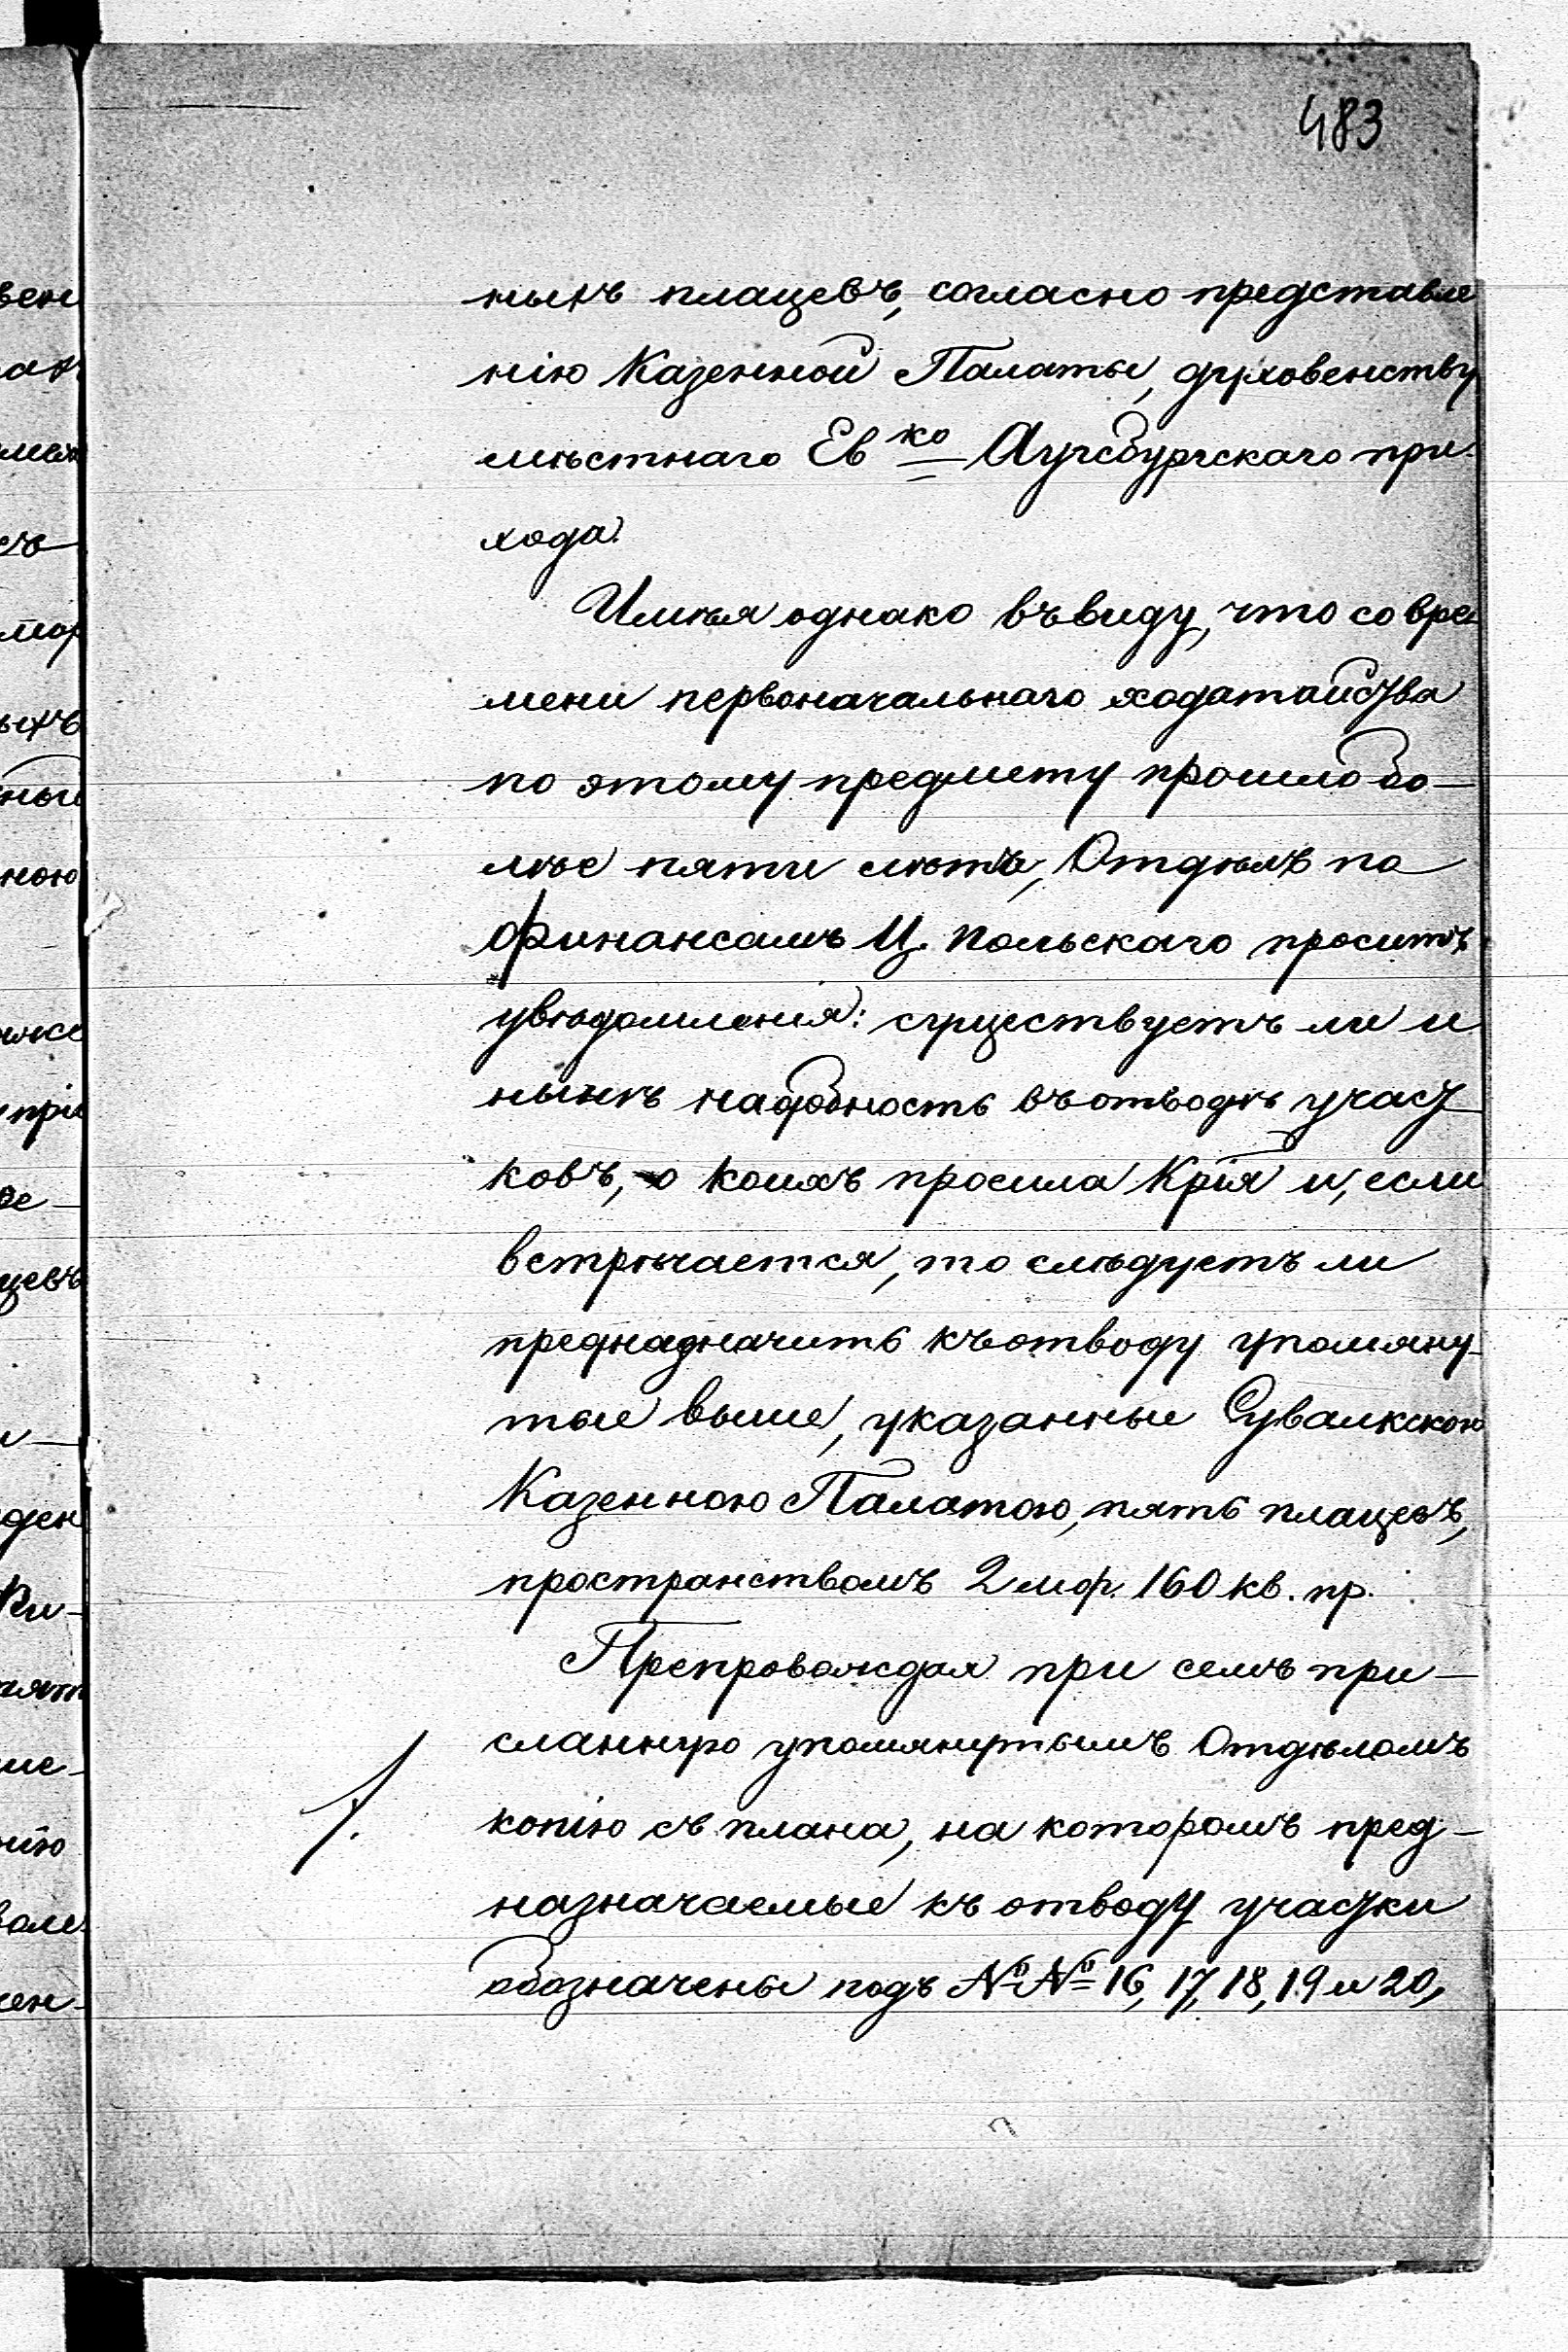 483
ныхъ плацевъ, согласно представле
нію Казенной Палаты, духовенству
мѣстнаго Ев ко = Аугсбургскаго при
хода.
Имѣя однако въ виду, что со вре-
мени первоначальнаго ходатайства
по этому предмету прошло бо-
лѣе пяти лѣтъ, Отдѣлъ по
финансамъ Ц. Польскаго проситъ
увѣдомленія: существуетъ ли и
нынѣ надобность въ отводѣ участ
ковъ, о коихъ просила Крія и, если
встрѣчается, то слѣдуетъ ли
предназначить къ отводу упомяну-
тые выше, указанные Сувалкскою
Казенною Палатою, пять плацевъ,
пространствомъ 2 мор. 160 кв. пр.
Препровождая при семъ при-
сланную упомянутымъ Отдѣломъ
копію съ плана, на которомъ пред-
назначаемые къ отводу участки
обозначены подъ №№ 16, 17, 18, 19 и 20,